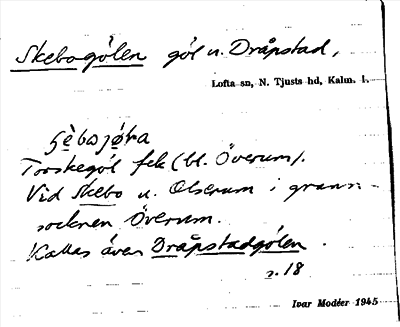 Skebogölen göl u. Dråpstad,
Lofta sn, N. Tjusts hd, Kalm. l.
Torskegöl fek (bl. Överum).
Vid Skebo u. Olserum i grann-
socknen Överum.
Kallas även Dråpstadgölen.
r. 18
Ivar Modéer 1945